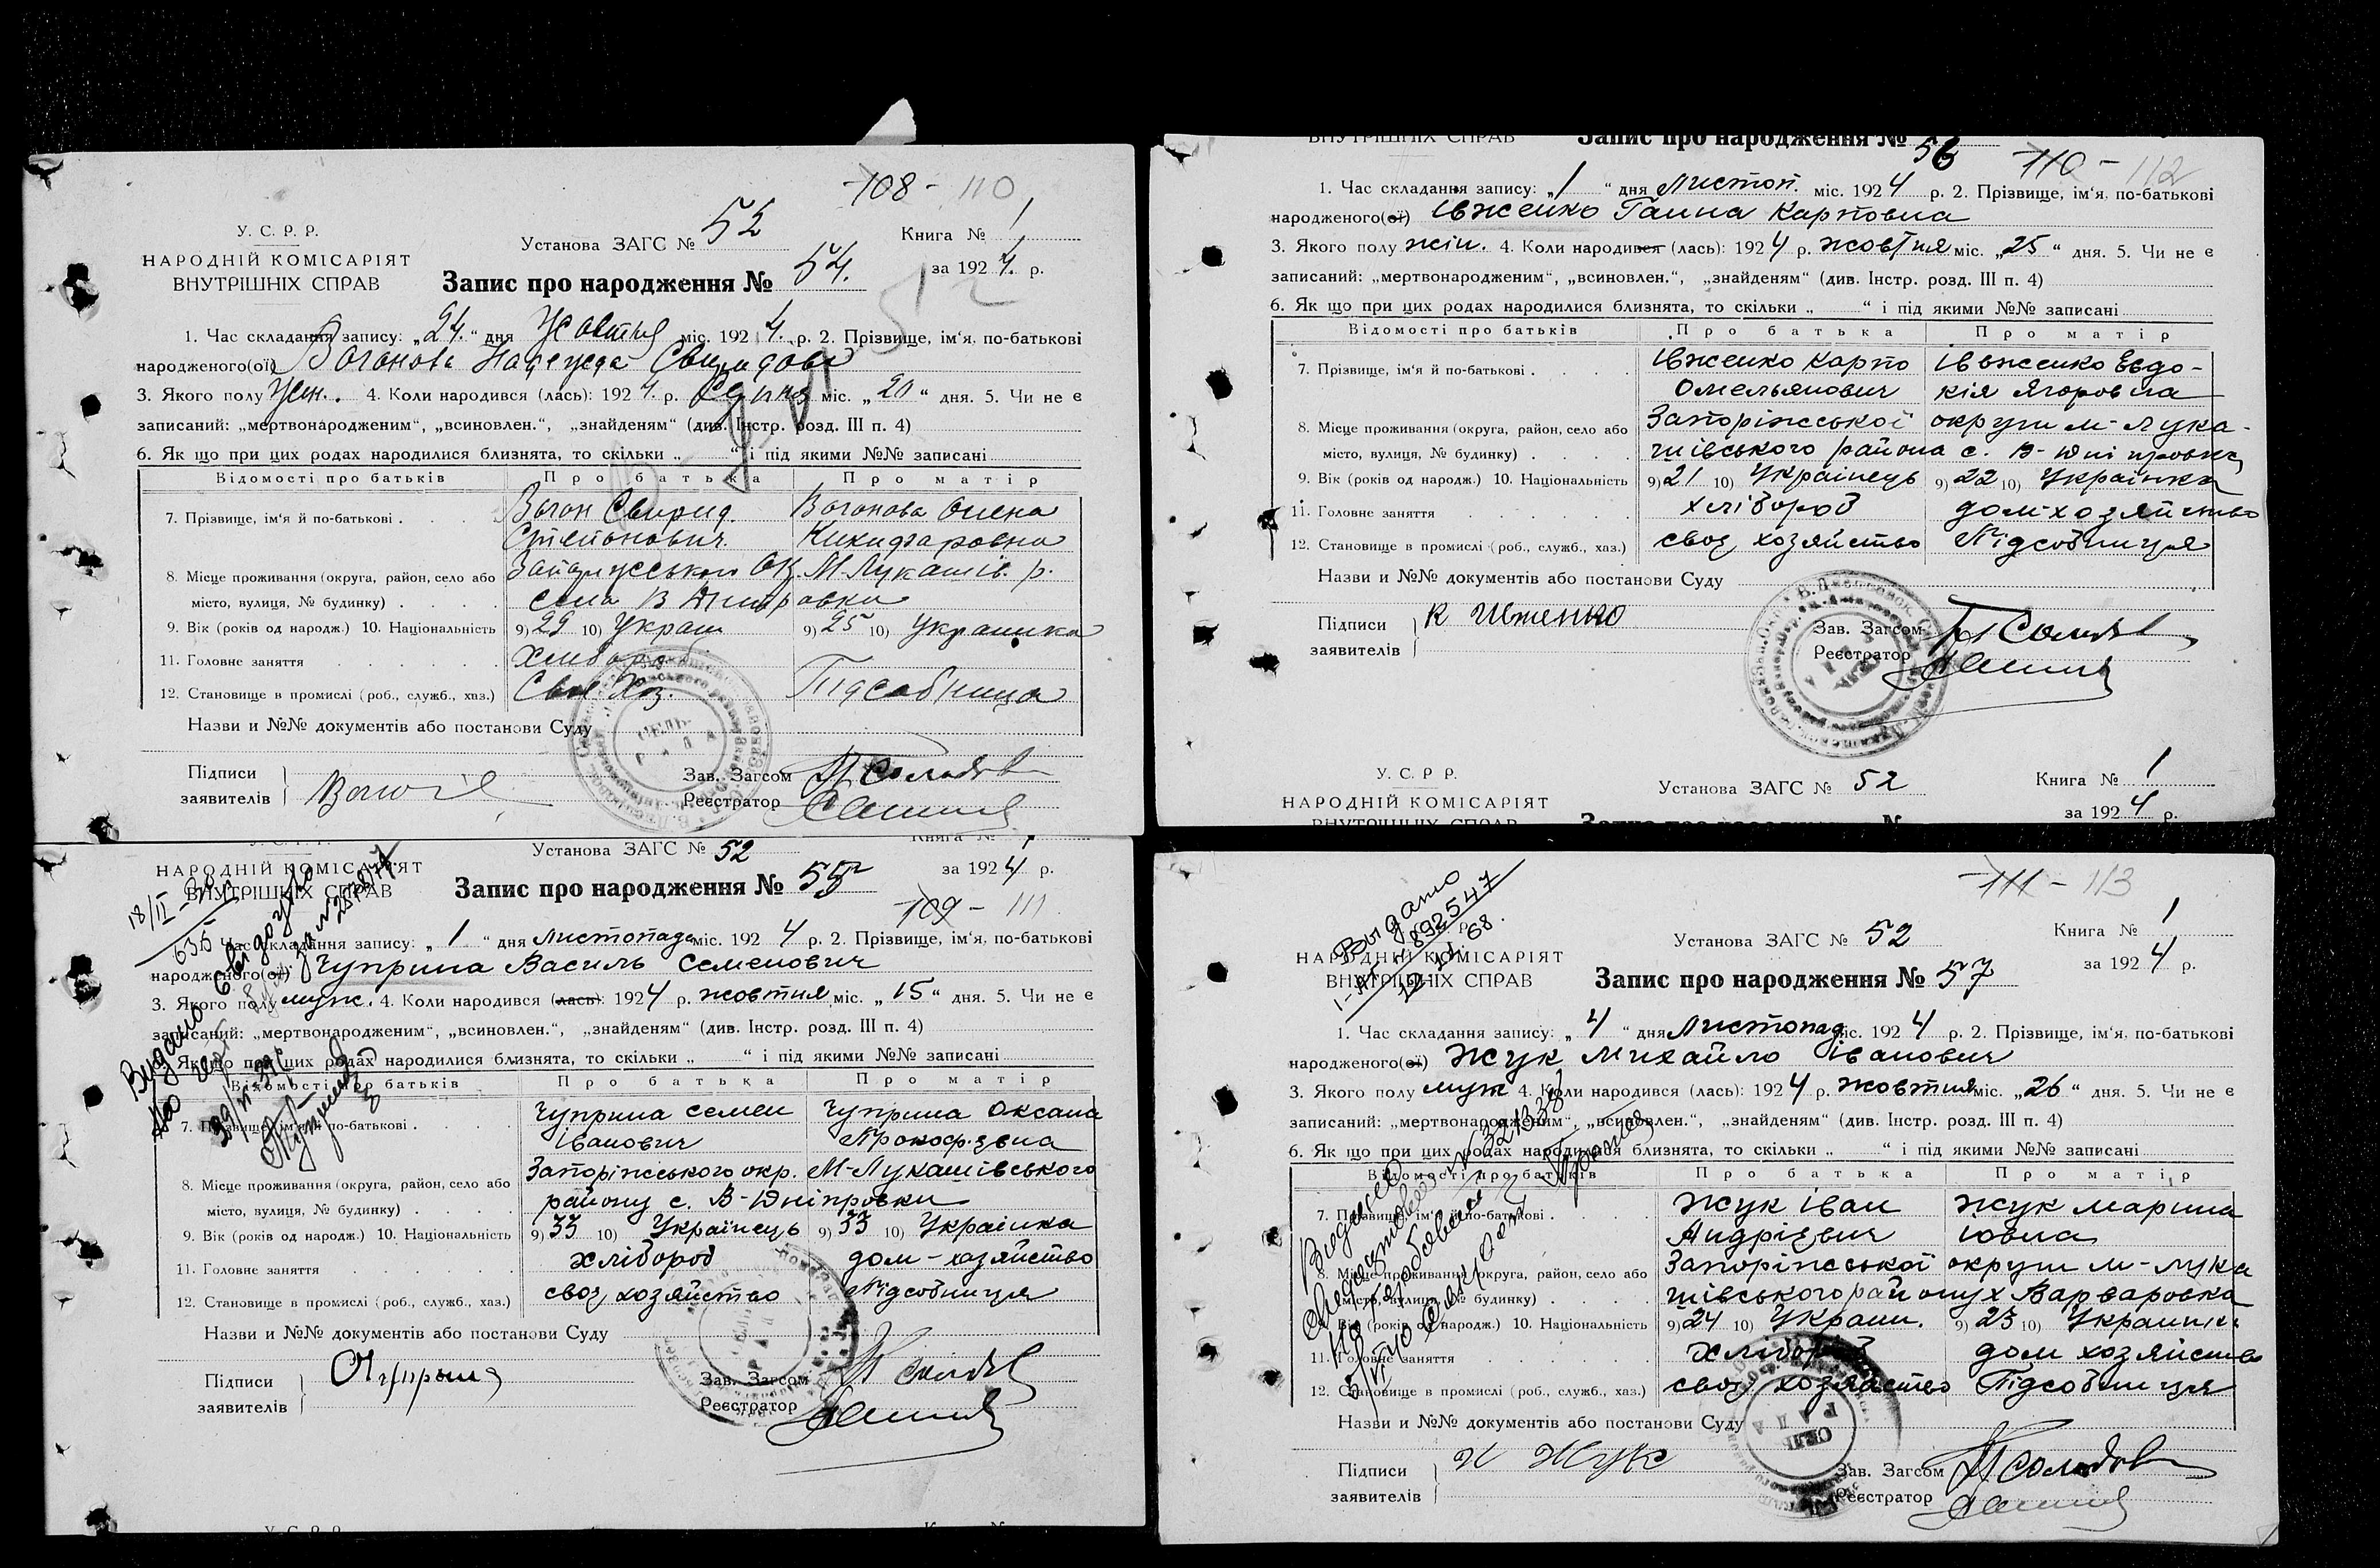 108 - 110
У. С. Р. Р.
НАРОДНІЙ КОМІСАРІЯТ
ВНУТРІШНІХ СПРАВ
Установа ЗАГС № 52
Книга № 1
за 1924 р.
Запис про народження № 54.
1. Час складання запису: „24.“ дня Жовтня міс. 1924. р. 2. Прізвище, ім‘я, по-батькові
народженого(ої) Воганова Надежда Свиридова
3. Якого полу жен. 4. Коли народився (лась): 1924. р. Серпня міс. „20“ дня. 5. Чи не є
записаний: „мертвонародженим“, „всиновлен.“, „знайденям“ (див. Інстр. розд. III п. 4)
6. Як що при цих родах народилися близнята, то скільки „ “ і під якими №№ записані
Відомості про батьків Про батька Про матір
7. Прізвище, ім‘я й по-батькові Воган Свирид. Воганова Олена
Степанович. Никифаровна
8. Місце проживання (округа, район, село або М-Лукашів. р.
місто, вулиця, № будинку) села В Дніпровки
9. Вік (років од народж.) 10. Національність 9) 29 10) Украін 9) 25 10) Украинка
11. Головне заняття Хлибороб
12. Становище в промислі (роб., служб., хаз.) Своє Хоз. Підсобница
Назви и №№ документів або постанови Суду
Підписи
заявителів
Зав. Загсом
Реєстратор
Установа ЗАГС № 52
Книга № 1
НАРОДНІЙ КОМІСАРІЯТ
ВНУТРІШНІХ СПРАВ
за 1924 р.
Запис про народження № 55
109 - 111
1. Час складання запису: „1“ дня листопада міс. 1924 р. 2. Прізвище, ім‘я, по-батькові
народженого(ої) Чуприна Василь Семенович
3. Якого полу муж. 4. Коли народився (лась): 1924 р. жовтня міс. „15“ дня. 5. Чи не є
записаний: „мертвонародженим“, „всиновлен.“, „знайденям“ (див. Інстр. розд. III п. 4)
6. Як що при цих родах народилися близнята, то скільки „ “ і під якими №№ записані
Відомості про батьків Про батька Про матір
7. Прізвище, ім‘я й по-батькові Чуприна Семен Чуприна Оксана
Іванович Прокофієвна
8. Місце проживання (округа, район, село або Запоріжського окр. М-Лукашівського
місто, вулиця, № будинку) району с. В-Дніпровки
9. Вік (років од народж.) 10. Національність 9) 33 10) Українець 9) 33 10) Украінка
11. Головне заняття хлібороб дом-хозяйство
12. Становище в промислі (роб., служб., хаз.) своє хозяйство Підсобниця
Назви и №№ документів або постанови Суду
Підписи
заявителів
Зав. Загсом
Реєстратор
ВНУТРІШНІХ СПРАВ Запис про народження № 56
110 - 112
1. Час складання запису: „1“ дня Листоп. міс. 1924 р. 2. Прізвище, ім‘я, по-батькові
народженого(ої) Івженко Ганна Карповна
3. Якого полу жін. 4. Коли народився (лась): 1924 р. жовтня міс. „25“ дня. 5. Чи не є
записаний: „мертвонародженим“, „всиновлен.“, „знайденям“ (див. Інстр. розд. III п. 4)
6. Як що при цих родах народилися близнята, то скільки „ “ і під якими №№ записані
Відомості про батьків Про батька Про матір
7. Прізвище, ім‘я й по-батькові Івженко Карпо Івженко Евдо-
Омельянович кія Ягоровна
8. Місце проживання (округа, район, село або Запоріжської округи М-Лука-
місто, вулиця, № будинку) шівського района с. В-Дніпровка
9. Вік (років од народж.) 10. Національність 9) 21 10) Украінець 9) 22 10) Украінка
11. Головне заняття хлібороб дом-хозяйство
12. Становище в промислі (роб., служб., хаз.) своє хозяйство Підсобниця
Назви и №№ документів або постанови Суду
Підписи К Ивженко
заявителів
Зав. Загсом
Реєстратор
У. С. Р. Р.
НАРОДНІЙ КОМІСАРІЯТ
Установа ЗАГС № 52
Книга № 1
за 1924 р.
111 - 113
Выдано
НАРОДНІЙ КОМІСАРІЯТ
ВНУТРІШНІХ СПРАВ
Установа ЗАГС № 52
Книга № 1
за 1924 р.
Запис про народження № 57
1. Час складання запису: „4“ дня Листопад міс. 1924 р. 2. Прізвище, ім‘я, по-батькові
народженого(ої) Жук Михайло Іванович
3. Якого полу муж 4. Коли народився (лась): 1924 р. жовтня міс. „26“ дня. 5. Чи не є
записаний: „мертвонародженим“, „всиновлен.“, „знайденям“ (див. Інстр. розд. III п. 4)
6. Як що при цих родах народилися близнята, то скільки „ “ і під якими №№ записані
Відомості про батьків Про батька Про матір
7. Прізвище, ім‘я й по-батькові Жук Іван Жук Марина
Андрієвич Іовна
8. Місце проживання (округа, район, село або Запоріжської округи М-Лука
місто, вулиця, № будинку) шівського району х Варваровка
9. Вік (років од народж.) 10. Національність 9) 24 10) Украин. 9) 23 10) Украинка
11. Головне заняття хлібороб дом хозяйство
12. Становище в промислі (роб., служб., хаз.) своє хозяйство Підсобниця
Назви и №№ документів або постанови Суду
Підписи И Жук
заявителів
Зав. Загсом
Реєстратор